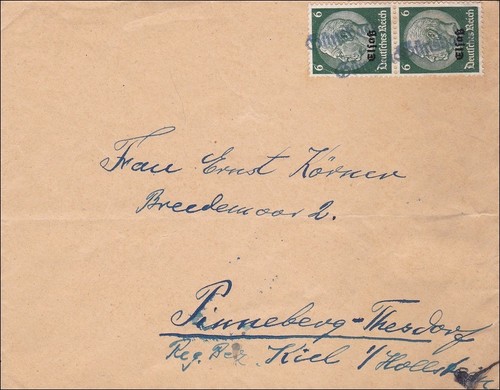 6 Deutsches Reich Elsaß
6 Deutsches Reich Elsaß
Frau Ernst Körner
Breedemoor 2.
Pinneberg-Thesdorf
Reg. Bez. Kiel i/Hollstein